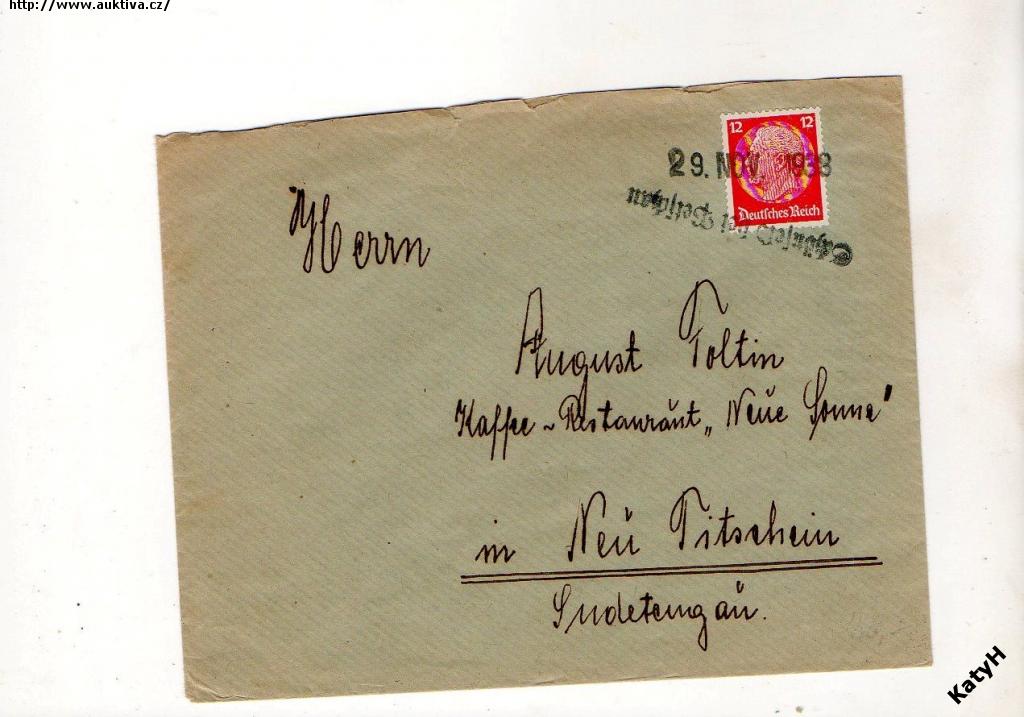 http://www.auktiva.cz/
12 12
29. NOV. 1938
Deutsches Reich
bei
Herrn
August Toltin
Kaffee-Restaurant „Neue Sonne"
in Neu Titschein
Sudetengau.
KatyH